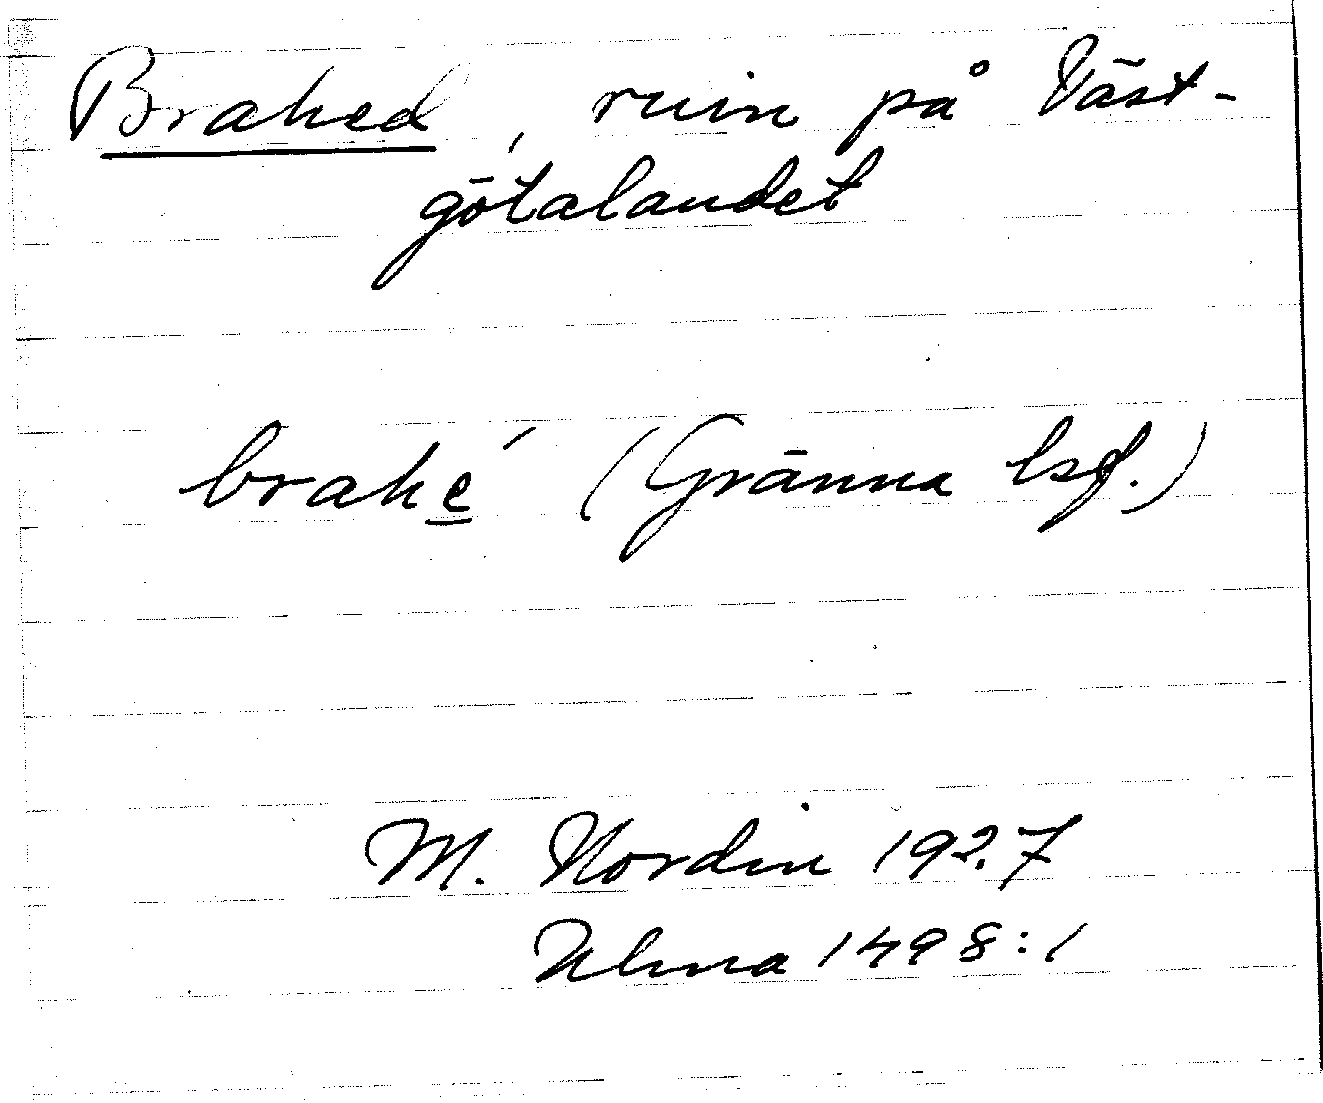 Brahed, ruin på Väst-
götalandet
brahe̲´ (Gränna lsf.)
M. Nordin 1927
Ulma 1498:1